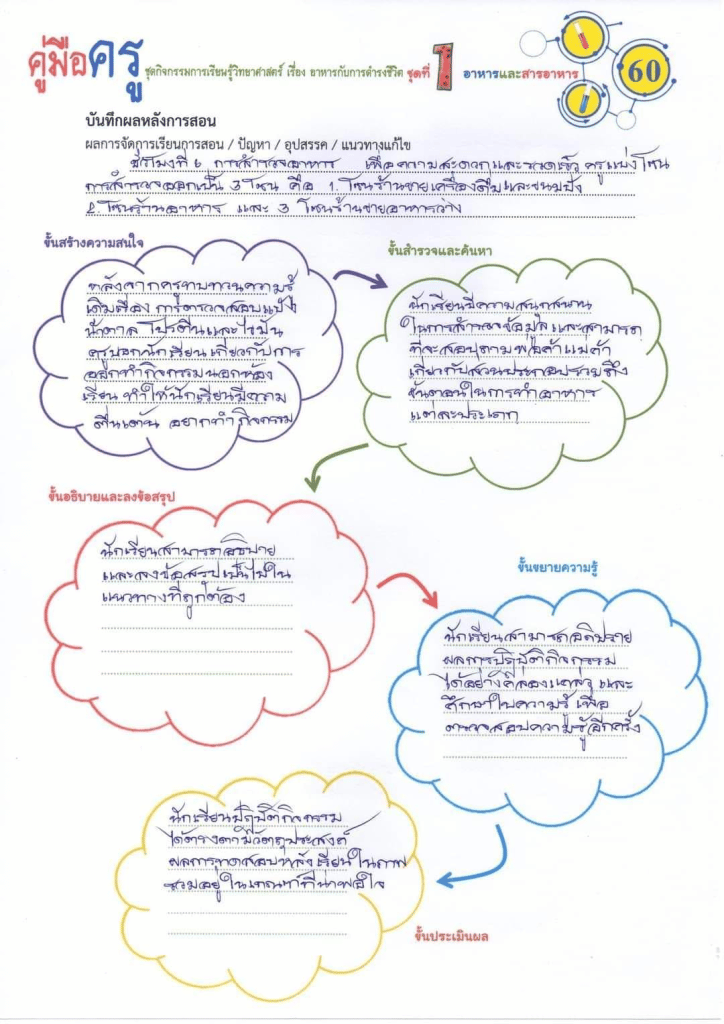 คู่มือครู
ชุดกิจกรรมการเรียนรู้วิทยาศาสตร์ เรื่อง อาหารกับการดำรงชีวิต ชุดที่ 1 อาหารและสารอาหาร
60
บันทึกผลหลังการสอน
ผลการจัดการเรียนการสอน / ปัญหา / อุปสรรค / แนวทางแก้ไข
ชั่วโมงที่ 6 การสำรวจอาหาร เพื่อความสะดวกและรวดเร็ว ครูแบ่งโซน
การสำรวจออกเป็น 3 โซน คือ 1. โซนร้านขายเครื่องดื่มและขนมปัง
2. โซนร้านอาหาร และ 3 โซนร้านขายอาหารว่าง
ขั้นสร้างความสนใจ
หลังจากครูทบทวนความรู้
เดิมเรื่อง การตรวจสอบแป้ง
น้ำตาล โปรตีนและไขมัน
ครูบอกนักเรียนเกี่ยวกับการ
ออกทำกิจกรรมนอกห้อง
เรียน ทำให้นักเรียนมีความ
ตื่นเต้น อยากทำกิจกรรม
ขั้นสำรวจและค้นหา
นักเรียนมีความสนุกสนาน
ในการสำรวจข้อมูล และสามารถ
ที่จะสอบถามพ่อค้าแม่ค้า
เกี่ยวกับส่วนประกอบรวมถึง
ขั้นตอนในการทำอาหาร
แต่ละประเภท
ขั้นอธิบายและลงข้อสรุป
นักเรียนสามารถอธิบาย
และลงข้อสรุปเป็นไปใน
แนวทางที่ถูกต้อง
ขั้นขยายความรู้
นักเรียนสามารถอภิปราย
ผลการปฏิบัติกิจกรรม
ได้อย่างคล่องแคล่ว และ
ศึกษาใบความรู้ เพื่อ
ตรวจสอบความรู้อีกครั้ง
นักเรียนปฏิบัติกิจกรรม
ได้ตรงตามวัตถุประสงค์
ผลการทดสอบหลังเรียนในภาพ
รวมอยู่ในเกณฑ์ที่น่าพอใจ
ขั้นประเมินผล